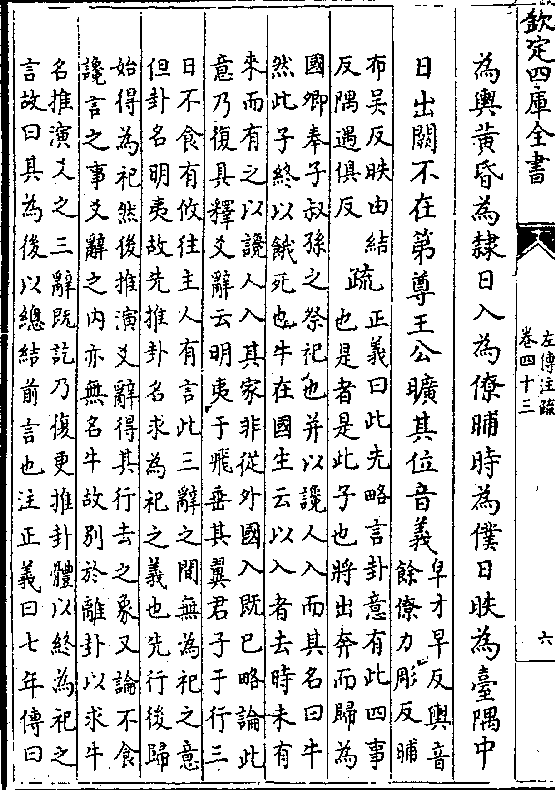 欽定四庫全書
左傳注疏
卷四十三
六
為輿黄昏為隸日入為僚晡時為僕日昳為臺隅中
日出闕不在第尊王公曠其位音義
皁才早反輿音
餘僚力彫反晡
布吴反昳由結
反隅遇俱反
疏
正義曰此先略言卦意有此四事
也是者是此子也將出奔而歸為
國卿奉子叔孫之祭祀也并以讒人入而其名曰牛
然此子終以餓死也牛在國生云以入者去時未有
來而有之以讒人入其家非從外國入既巳略論此
意乃復具釋爻辭云明夷于飛垂其翼君子于行三
日不食有攸往主人有言此三辭之間無為祀之意
但卦名明夷故先推卦名求為祀之義也先行後歸
始得為祀然後推演爻辭得其行去之象又論不食
讒言之事爻辭之内亦無名牛故别於離卦以求牛
名推演爻之三辭既訖乃復更推卦體以終為祀之
言故曰其為後以總結前言也注正義曰七年傳曰